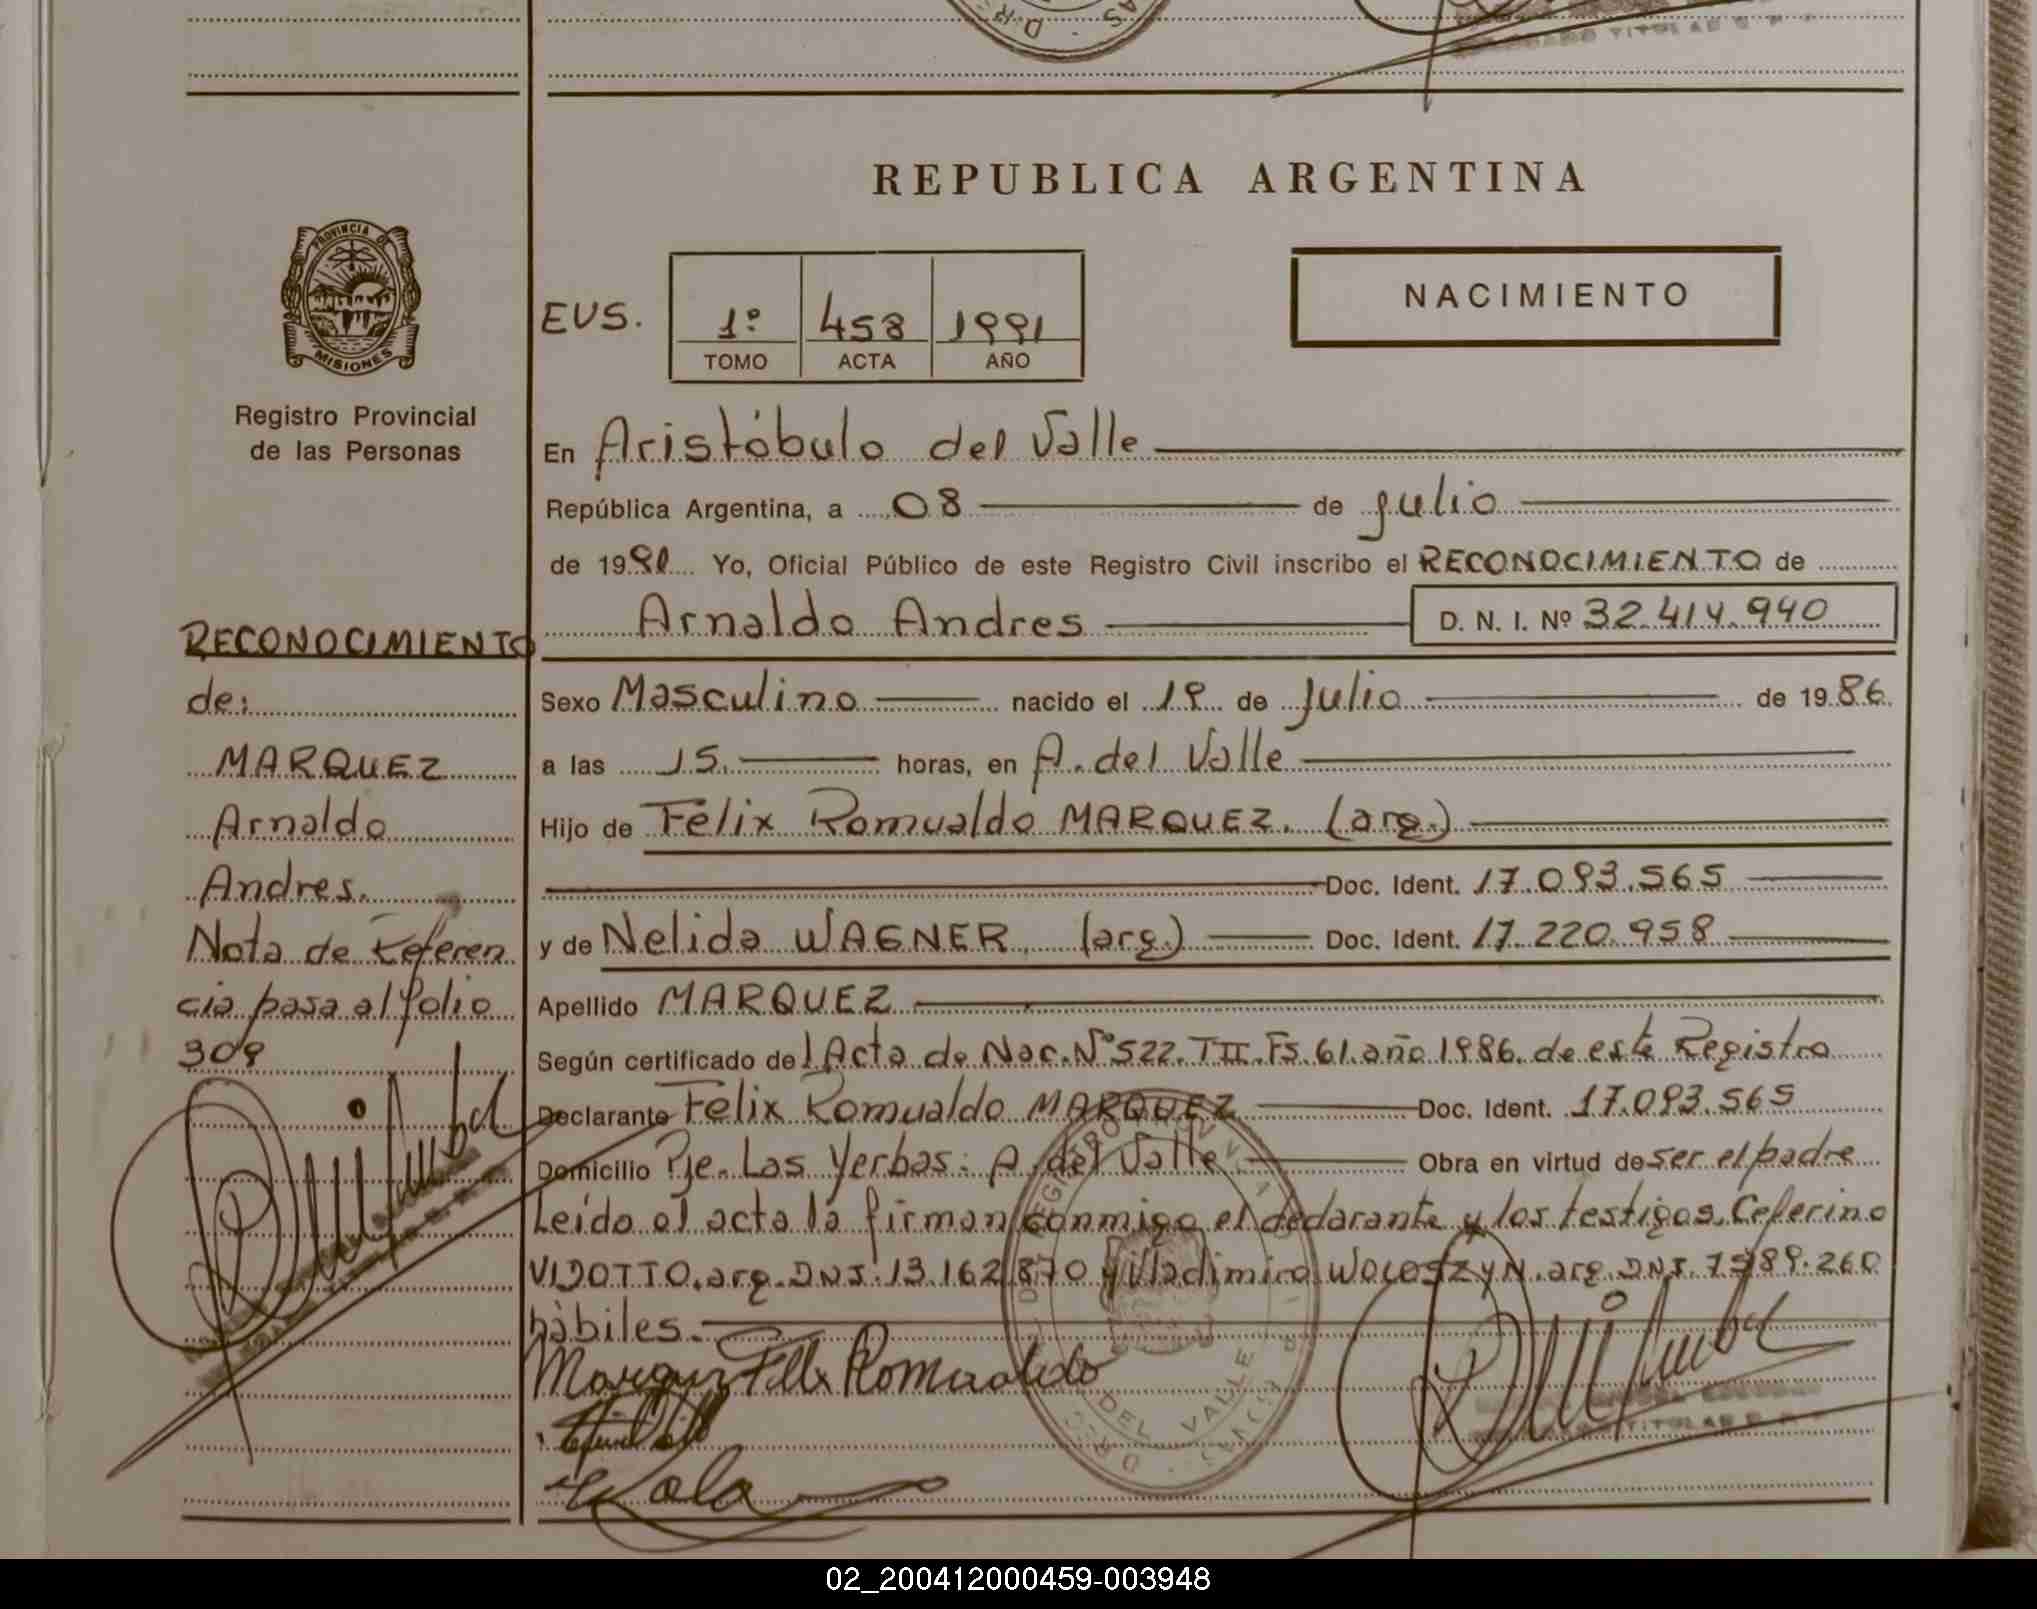 REPUBLICA ARGENTINA
PROVINCIA DE
MISIONES
Registro Provincial
de las Personas
EUS.
1º 458 1991
TOMO ACTA AÑO
NACIMIENTO
En Aristóbulo del Valle
República Argentina, a 08 de julio
de 1991 Yo, Oficial Público de este Registro Civil inscribo el RECONOCIMIENTO de
Arnaldo Andres D. N. I. Nº 32.414.940
Sexo Masculino nacido el 19 de Julio de 1986
a las 15. horas, en A. del Valle
Hijo de Felix Romualdo MARQUEZ. (arg.)
Doc. Ident. 17.093.565
y de Nelida WAGNER (arg.) Doc. Ident. 17.220.958
Apellido MARQUEZ
Según certificado del Acta de Nac. Nº 522. TII. Fs 61. año 1986. de este Registro
Declarante Felix Romualdo MARQUEZ Doc. Ident. 17.093.565
Domicilio Pje. Las Yerbas: A. del Valle Obra en virtud de ser el padre
Leído el acta la firman conmigo el declarante y los testigos, Ceferino
VIDOTTO. arg. DNI. 13.162.870 y Vladimiro WOLOSZYN. arg. DNI. 7.589.260
hábiles.
Marquez Felix Romualdo
DEL VALLE
TITULAR
RECONOCIMIENTO
de:
MARQUEZ
Arnaldo
Andres.
Nota de Referen
cia pasa al folio
309
02_200412000459-003948